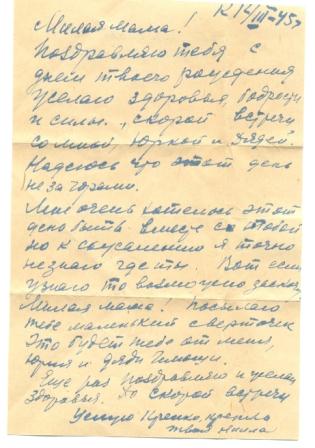 К 14/III-45г
Милая мама!
Поздравляю тебя с
днем твоего рождения
Желаю здоровья, бодрости
и силы., скорой встречи
со мной, Юркой и дядей.
Надеюсь что этот день
не за горами.
Мне очень хотелось этот
день быть вместе с тобой
но к сожалению я точно
не знаю где ты. Вот если
узнаю то возможно заскочу
Милая мама! Посылаю
тебе маленький сверточек
Это будет тебе от меня,
Юрия и дяди Тимоши.
Еще раз поздравляю и желаю
здоровья. До скорой встречи
Целую крепко, крепко
твоя